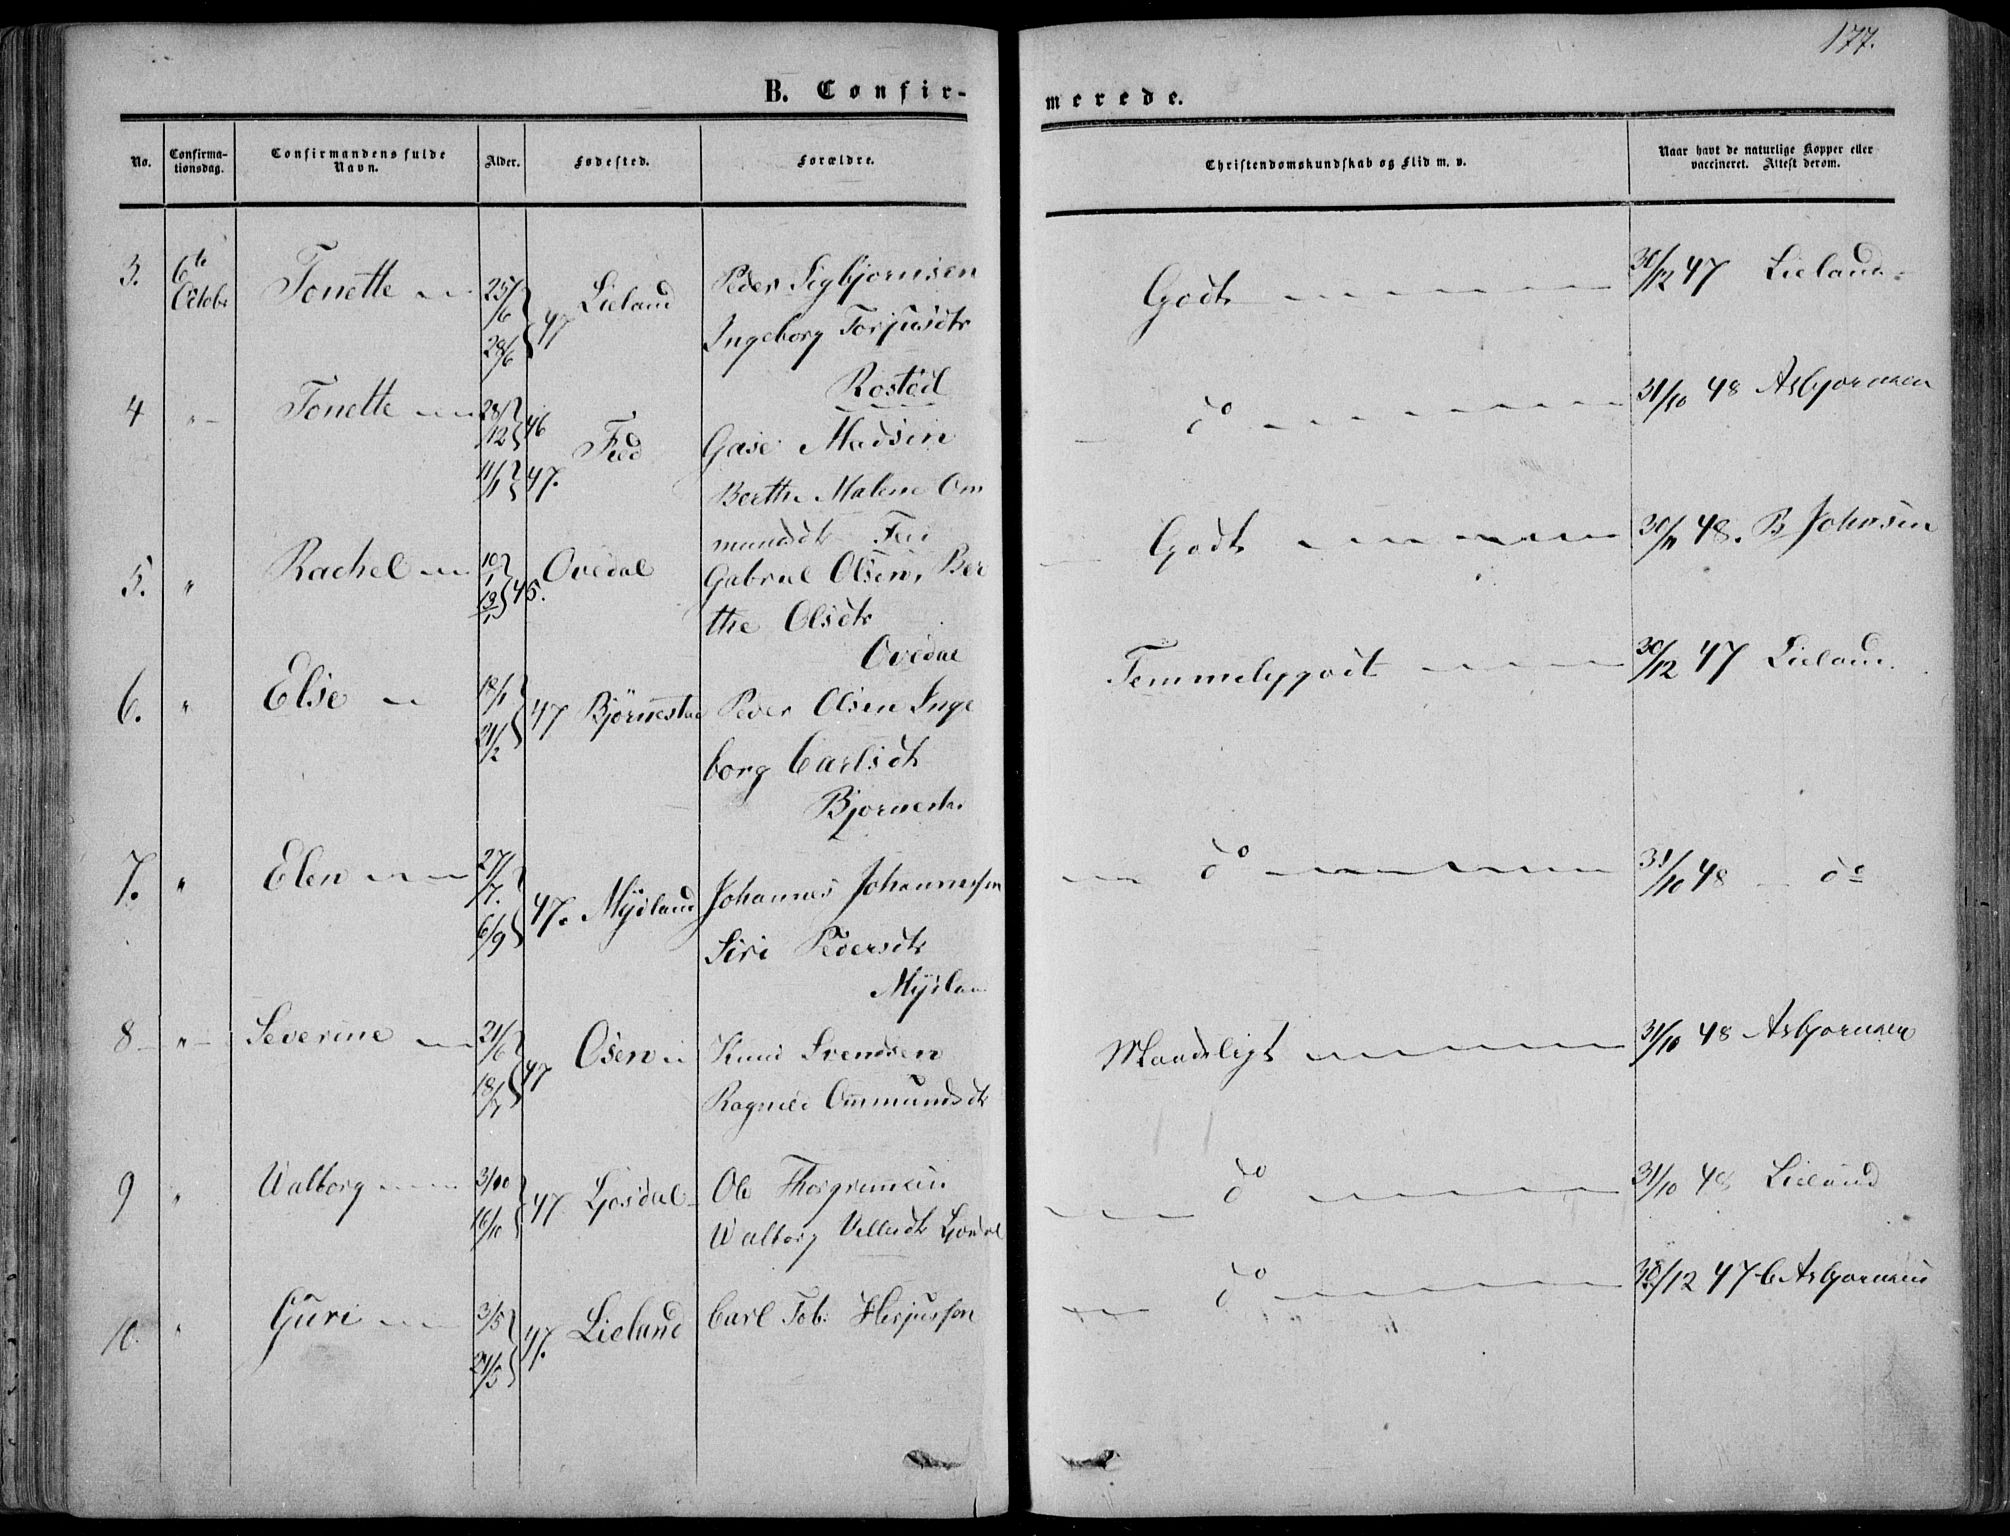 177.
B. Confir-
merede.
No.
Confirma-
tionsdag.
Confirmandens fulde
Navn.
Alder.
Fødested.
Forældre.
Christendomskundskab og Flid m. v.
Naar havt de naturlige Kopper eller
vaccineret. Attest derom.
3. 6te Octobr Tonette 25/6 28/6 47 Lieland Peder Sigbjørnsen
Ingeborg Torjusdtr
Rostöl
Godt 30/12 47 Lieland
4 " Tonette 28/12 46 11/1 47. Feed Gase Madsen
Berthe Malene Om
mundsdtr
do 31/10 48 Asbjørnsen
5. " Rachel 10/1 45. Ovedal Gabriel Olsen, Ber
the Olsdtr
Ovedal
Godt 48. B Johnsen
6. " Else 18/1 21/2 47 Bjørnestad Peder Olsen Inge
borg Carlsdtr
Bjørnest.
Temmeligodt 30/12 47 Lieland
7. " Elen 27/7. 6/9 47. Mydland Johannes Johannesson
Siri Pedersdtr
Mydlan
do 31/10 48 do
8 " Severine 21/6 18/7 47 Osen Knud Svendsen
Ragnild Ommundsdtr
Maadeligt 31/10 48 Asbjørnsen
9 " Walborg 3/10 16/10 47 Gosdal Ole Thorgrimsen
Walborg
do 31/10 48 Lieland
10. " Guri 3/5 24/5 47. Lieland Carl Tob. Herjusson
do 30/12 47 C Asbjørnsen